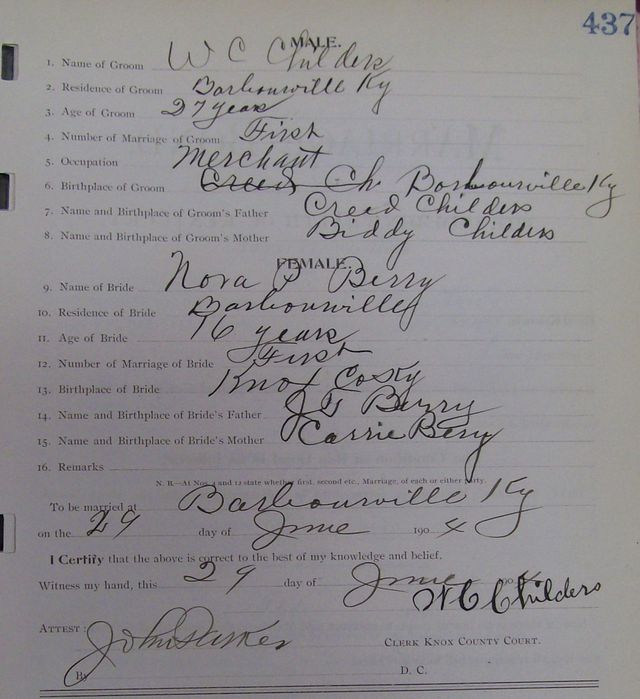 437
MALE.
1. Name of Groom W C Childers
2. Residence of Groom Barbourville Ky
3. Age of Groom 27 years
4. Number of Marriage of Groom First
5. Occupation Merchant
6. Birthplace of Groom Creed Ch Barbourville Ky
7. Name and Birthplace of Groom's Father Creed Childers
8. Name and Birthplace of Groom's Mother Biddy Childers
FEMALE.
9. Name of Bride Nora P Berry
10. Residence of Bride Barbourville
11. Age of Bride 16 years
12. Number of Marriage of Bride First
13. Birthplace of Bride Knox Co Ky
14. Name and Birthplace of Bride's Father J T Berry
15. Name and Birthplace of Bride's Mother Carrie Bery
16. Remarks
N. B.—At Nos. 4 and 12 state whether first, second etc., Marriage, of each or either party.
To be married at Barbourville Ky
on the 29 day of June 190 4
I Certify that the above is correct to the best of my knowledge and belief.
Witness my hand, this 29 day of June 190 4
W C Childers
ATTEST: John Parker CLERK KNOX COUNTY COURT.
By D. C.